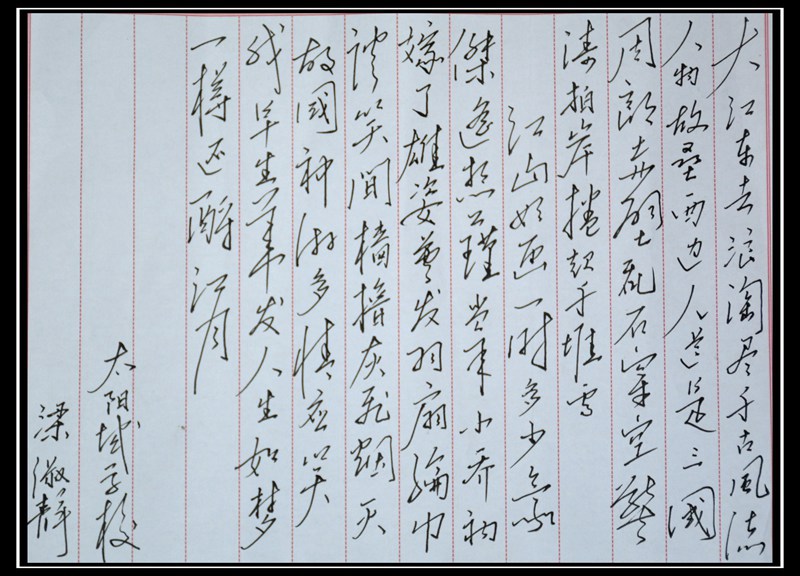 大江东去浪淘尽千古风流
人物故垒西边人道是三國
周郎赤壁乱石穿空驚
涛拍岸捲起千堆雪
江山如画一时多少豪
傑遥想公瑾当年小乔初
嫁了雄姿英发羽扇綸巾
谈笑間樯橹灰飞烟灭
故國神游多情应笑
我早生华发人生如梦
一樽还酹江月
太阳城学校
梁静